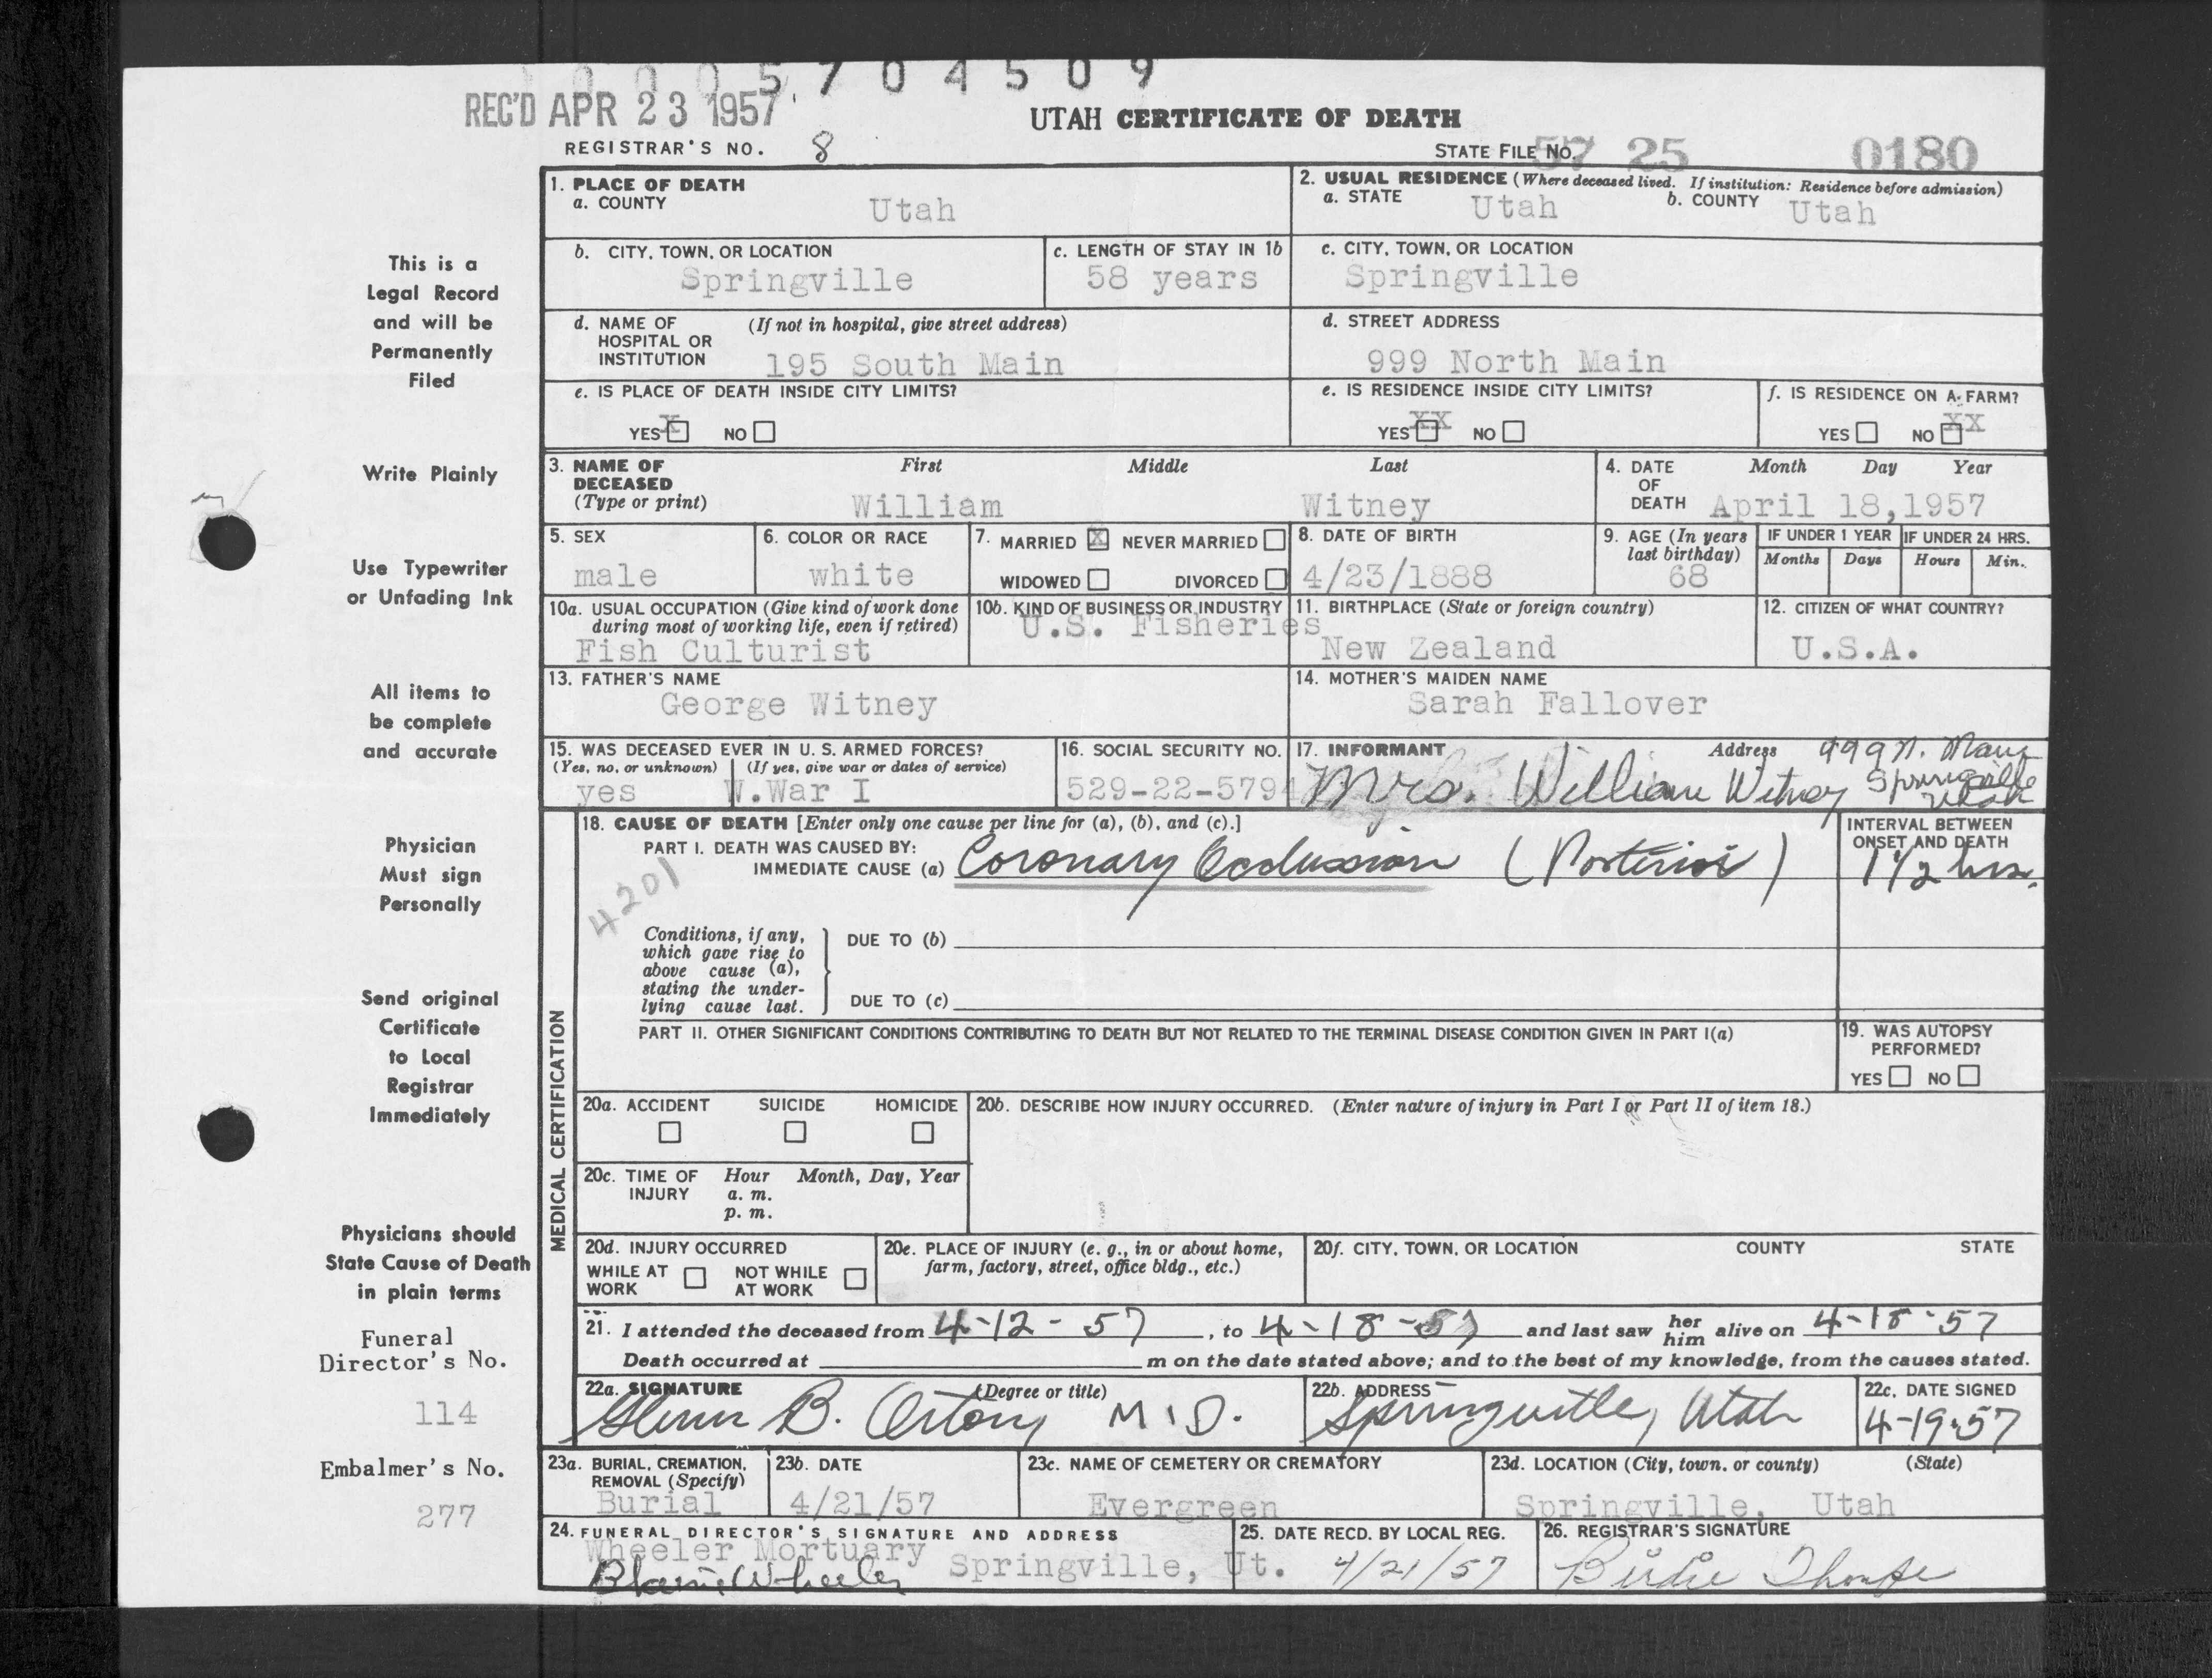 0005704509
REC'D APR 23 1957
UTAH CERTIFICATE OF DEATH
REGISTRAR'S NO. 8
STATE FILE NO. 57 25 0180
This is a
Legal Record
and will be
Permanently
Filed
Write Plainly
Use Typewriter
or Unfading Ink
All items to
be complete
and accurate
Physician
Must sign
Personally
Send original
Certificate
to Local
Registrar
Immediately
Physicians should
State Cause of Death
in plain terms
Funeral
Director's No.
114
Embalmer's No.
277
1. PLACE OF DEATH
a. COUNTY Utah
2. USUAL RESIDENCE (Where deceased lived. If institution: Residence before admission)
a. STATE Utah b. COUNTY Utah
b. CITY, TOWN, OR LOCATION
Springville
c. LENGTH OF STAY IN 1b
58 years
c. CITY, TOWN, OR LOCATION
Springville
d. NAME OF (If not in hospital, give street address)
HOSPITAL OR
INSTITUTION 195 South Main
d. STREET ADDRESS
999 North Main
e. IS PLACE OF DEATH INSIDE CITY LIMITS?
YES X NO
e. IS RESIDENCE INSIDE CITY LIMITS?
YES XX NO
f. IS RESIDENCE ON A FARM?
YES NO XX
3. NAME OF DECEASED (Type or print)
First Middle Last
William Witney
4. DATE OF DEATH
Month Day Year
April 18,1957
5. SEX
male
6. COLOR OR RACE
white
7. MARRIED X NEVER MARRIED
WIDOWED DIVORCED
8. DATE OF BIRTH
4/23/1888
9. AGE (In years
last birthday)
68
IF UNDER 1 YEAR
Months Days
IF UNDER 24 HRS.
Hours Min.
10a. USUAL OCCUPATION (Give kind of work done
during most of working life, even if retired)
Fish Culturist
10b. KIND OF BUSINESS OR INDUSTRY
U.S. Fisheries
11. BIRTHPLACE (State or foreign country)
New Zealand
12. CITIZEN OF WHAT COUNTRY?
U.S.A.
13. FATHER'S NAME
George Witney
14. MOTHER'S MAIDEN NAME
Sarah Fallover
15. WAS DECEASED EVER IN U. S. ARMED FORCES?
(Yes, no, or unknown) (If yes, give war or dates of service)
yes W.War I
16. SOCIAL SECURITY NO.
529-22-5794
17. INFORMANT Address 999 N. Main
Mrs. William Witney Springville
Utah
MEDICAL CERTIFICATION
18. CAUSE OF DEATH [Enter only one cause per line for (a), (b), and (c).]
PART I. DEATH WAS CAUSED BY:
IMMEDIATE CAUSE (a) Coronary Occlussion (Posterior)
INTERVAL BETWEEN
ONSET AND DEATH
1 1/2 hrs.
4201
Conditions, if any,
which gave rise to
above cause (a),
stating the under-
lying cause last.
DUE TO (b)
DUE TO (c)
PART II. OTHER SIGNIFICANT CONDITIONS CONTRIBUTING TO DEATH BUT NOT RELATED TO THE TERMINAL DISEASE CONDITION GIVEN IN PART I(a)
19. WAS AUTOPSY
PERFORMED?
YES NO
20a. ACCIDENT SUICIDE HOMICIDE
20b. DESCRIBE HOW INJURY OCCURRED. (Enter nature of injury in Part I or Part II of item 18.)
20c. TIME OF INJURY
Hour Month, Day, Year
a. m.
p. m.
20d. INJURY OCCURRED
WHILE AT WORK NOT WHILE AT WORK
20e. PLACE OF INJURY (e. g., in or about home,
farm, factory, street, office bldg., etc.)
20f. CITY, TOWN, OR LOCATION COUNTY STATE
21. I attended the deceased from 4-12-57, to 4-18-57 and last saw her him alive on 4-18-57
Death occurred at m on the date stated above; and to the best of my knowledge, from the causes stated.
22a. SIGNATURE (Degree or title)
Glenn B. Orton M.D.
22b. ADDRESS
Springville, Utah
22c. DATE SIGNED
4-19-57
23a. BURIAL, CREMATION,
REMOVAL (Specify)
Burial
23b. DATE
4/21/57
23c. NAME OF CEMETERY OR CREMATORY
Evergreen
23d. LOCATION (City, town, or county) (State)
Springville, Utah
24. FUNERAL DIRECTOR'S SIGNATURE AND ADDRESS
Wheeler Mortuary
Blaine Wheeler Springville, Ut.
25. DATE RECD. BY LOCAL REG.
4/21/57
26. REGISTRAR'S SIGNATURE
Birdie Thorpe